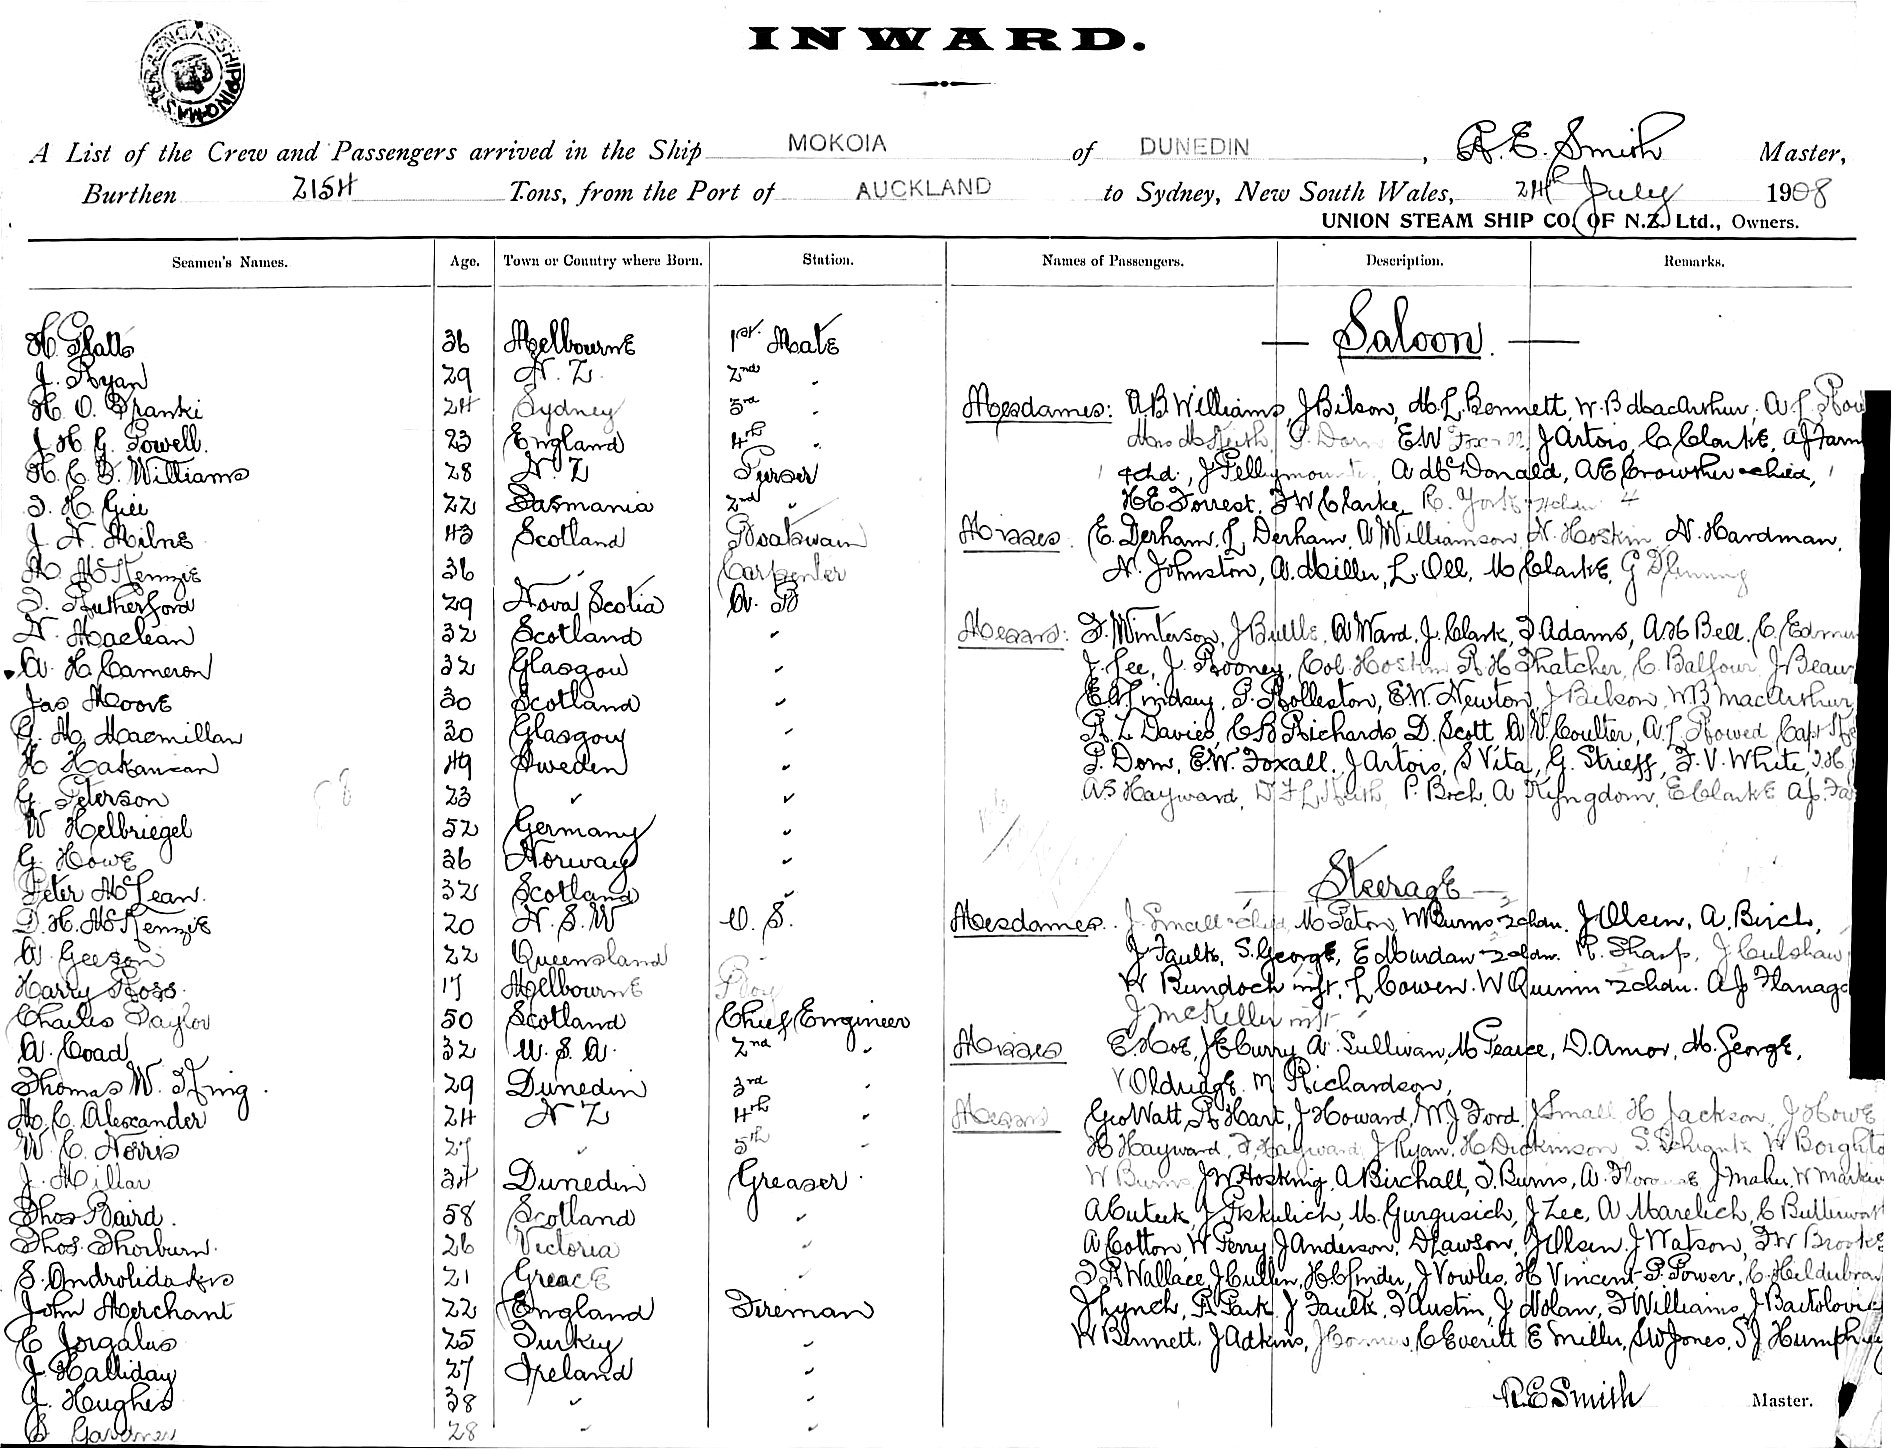 INWARD.
A List of the Crew and Passengers arrived in the Ship MOKOIA of DUNEDIN, R. E. Smith Master,
Burthen 2154 Tons, from the Port of AUCKLAND to Sydney, New South Wales, 24th July 1908
UNION STEAM SHIP CO. OF N.Z. Ltd., Owners.
Seamen's Names. Age. Town or Country where Born. Station. Names of Passengers. Description. Remarks.
H 36 Melbourne 1st Mate
J. Ryan 29 N. Z. 2nd
H. O. 24 Sydney 3rd
J H G Powell. 23 England 4th
H C D Williams 28 N. Z Purser
H. Gill 22 Tasmania 2nd
J N. Milne 43 Scotland Boatswain
McKenzie 36 Carpenter
Rutherford 29 Nova Scotia A. B
N. Maclean 32 Scotland
A. H. Cameron 32 Glasgow
Jas Moore 30 Scotland
G. H. Macmillan 30 Glasgow
H 49 Sweden
G. Peterson 23
W Helbriegel 52 Germany
G. Howe 36 Norway
Peter McLean. 32 Scotland
D. H. McKenzie 20 N. S. W O. S.
A. Geeson 22 Queensland
Harry Ross. 17 Melbourne Boy
Charles Taylor 50 Scotland Chief Engineer
A. Coad 32 U. S. A. 2nd
Thomas W. 29 Dunedin 3rd
C. Alexander 24 N Z 4th
W. C. Norris 27 5th
J. Millar 34 Dunedin Greaser
Thos Baird. 58 Scotland
Thos. Thorburn. 26 Victoria
S. 21 Greace
John Merchant 22 England Fireman
C Jorgalus 25 Turkey
J. Halliday 27 Ireland
J. Hughes 38
28
Saloon.
Mesdames: A B Williams, J Bilson, M. L. Bennett, W. B MacArthur, A L
E W J Artois, C Clarke, A J
J A McDonald, A E Crowther + child,
H E Forrest, F W Clarke, R. York
Misses. E. Derham, L Derham, A Williamson, N. Hoskin N. Hardman,
N. Johnston, A. Miller, L. Oll, M Clarke, G
Messrs: F. Winterson, J A Ward, J. Clark, F Adams, A H Bell,
J. Lee, J. Rooney, Col. Hoskin R. H Thatcher, C. Balfour, J
E A Lindsay, P. Rolleston, E.W. Newton, J Bilson, W B MacArthur,
R. L Davies, C B Richards, D. Scott A V. Coulter, A. L Capt
P. Dorn, E.W. Foxall, J Artois, S Vita, G. Strieff, F. V. White,
A S Hayward, P. Birch, A Kyngdom, E Clarke A J.
Steerage
Mesdames. J. Small M Paton, W Burns 2 chdn. J Olsen, A. Birch,
J Faulks, S. George, E Murdan 2 chdn. R. Sharp, J Culshaw
W Bundoch inft., L Cowen. W Quinn 2 chdn. A J
J McKeller inft.
Misses E. Hoe, J E Curry A. Sullivan, M Pearce, D. Amor, M. George,
V Oldridge, M Richardson,
Messrs Geo Watt, R Hart, J Howard, W. J Ford. J Small H Jackson, J Howe
H Hayward, F Hayward, J Ryan, H Dickinson,
W Burns, J W Hosking, A Birchall, T. Burns, A. J Maher,
A J M. Gurgusich, J Lee, A Marelich, C
A Cotton, W Perry, J Anderson, D Lawson, J Olsen, J Watson, F W
Wallace, J Cullen, J Vowles, H Vincent P. Power, C.
J Lynch, R Park, J Faulks, F Austin, J Nolan, F Williams, J
W Bennett, J Adkins, C Everitt E Miller, S W Jones, S J
R. E Smith Master.